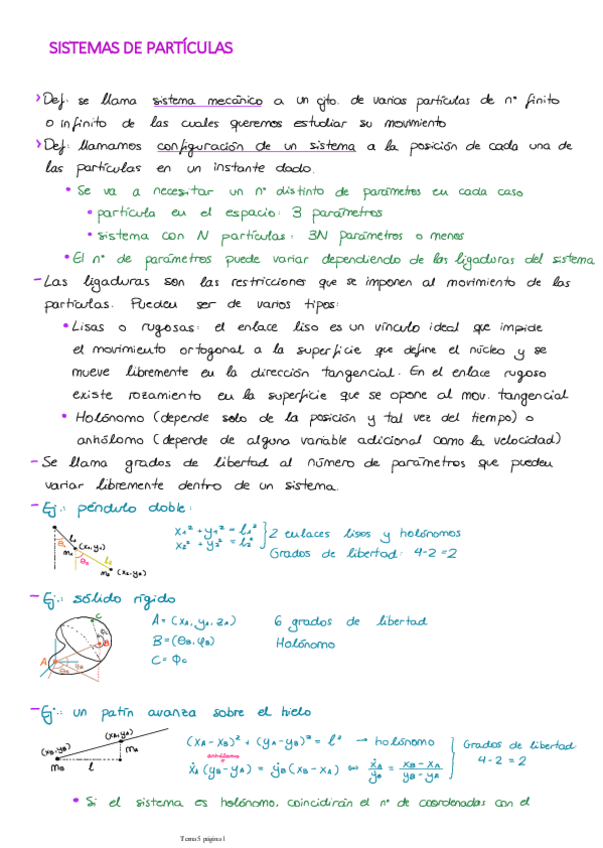 SISTEMAS DE PARTÍCULAS
> Def: se llama sistema mecánico a un cjto. de varias partículas de nº finito
o infinito de las cuales queremos estudiar su movimiento
> Def: llamamos configuración de un sistema a la posición de cada una de
las partículas en un instante dado.
• Se va a necesitar un nº distinto de parámetros en cada caso
• partícula en el espacio: 3 parámetros
• sistema con N partículas: 3N parámetros o menos
• El nº de parámetros puede variar dependiendo de las ligaduras del sistema
- Las ligaduras son las restricciones que se imponen al movimiento de las
partículas. Pueden ser de varios tipos:
• Lisas o rugosas: el enlace liso es un vínculo ideal que impide
el movimiento ortogonal a la superficie que define el núcleo y se
mueve libremente en la dirección tangencial. En el enlace rugoso
existe rozamiento en la superficie que se opone al mov. tangencial
• Holónomo (depende solo de la posición y tal vez del tiempo) o
anhólomo (depende de alguna variable adicional como la velocidad)
- Se llama grados de libertad al número de parámetros que pueden
variar libremente dentro de un sistema.
- Ej.: péndulo doble:
θ₁ l₁ (x₁,y₁)
m₁ θ₂ l₂
m₂ (x₂,y₂)
x₁² + y₁² = l₁²
x₂² + y₂² = l₂²
2 enlaces lisos y holónomos
Grados de libertad: 4-2=2
- Ej.: sólido rígido
A B C
A = (xA, yA, zA) 6 grados de libertad
B = (θB, φB) Holónomo
C = Φc
- Ej.: un patín avanza sobre el hielo
(xA,yA)
(xB,yB) mA
mB l
(xA - xB)² + (yA - yB)² = l² → holónomo
anhólomo
ẋA (yB - yA) = ẏB (xB - xA) ⇔ ẋA/ẏB = (xB - xA)/(yB - yA)
Grados de libertad
4-2 = 2
• Si el sistema es holónomo, coincidirán el nº de coordenadas con el
Tema 5 página 1